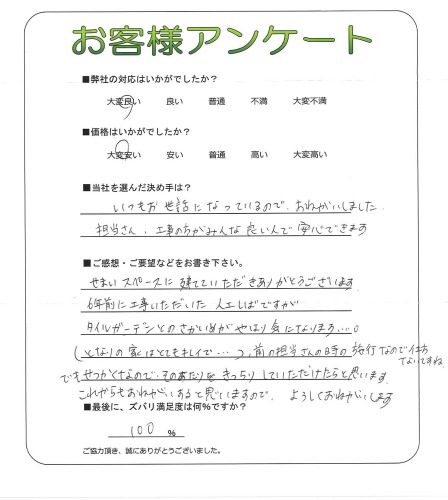 お客様アンケート
■弊社の対応はいかがでしたか？
大変良い 良い 普通 不満 大変不満
■価格はいかがでしたか？
大変安い 安い 普通 高い 大変高い
■当社を選んだ決め手は？
いつもお世話になっているので、おねがいしました
担当さん、工事の方がみんな良い人で安心できます
■ご感想・ご要望などをお書き下さい。
せまいスペースに建てていただきありがとうございます
6年前に工事いただいた人工しばですが
タイルガーデンとのさかいめがやはり気になります…。
(となりの家はとてもキレイで…
前の担当さんの時の施行なので仕方ないですね
でもせっかくなので、そのあたりをきっちりしていただけたらと思います
これからもおねがいすると思っていますので、よろしくおねがいします
■最後に、ズバリ満足度は何%ですか？
100 %
ご協力頂き、誠にありがとうございました。